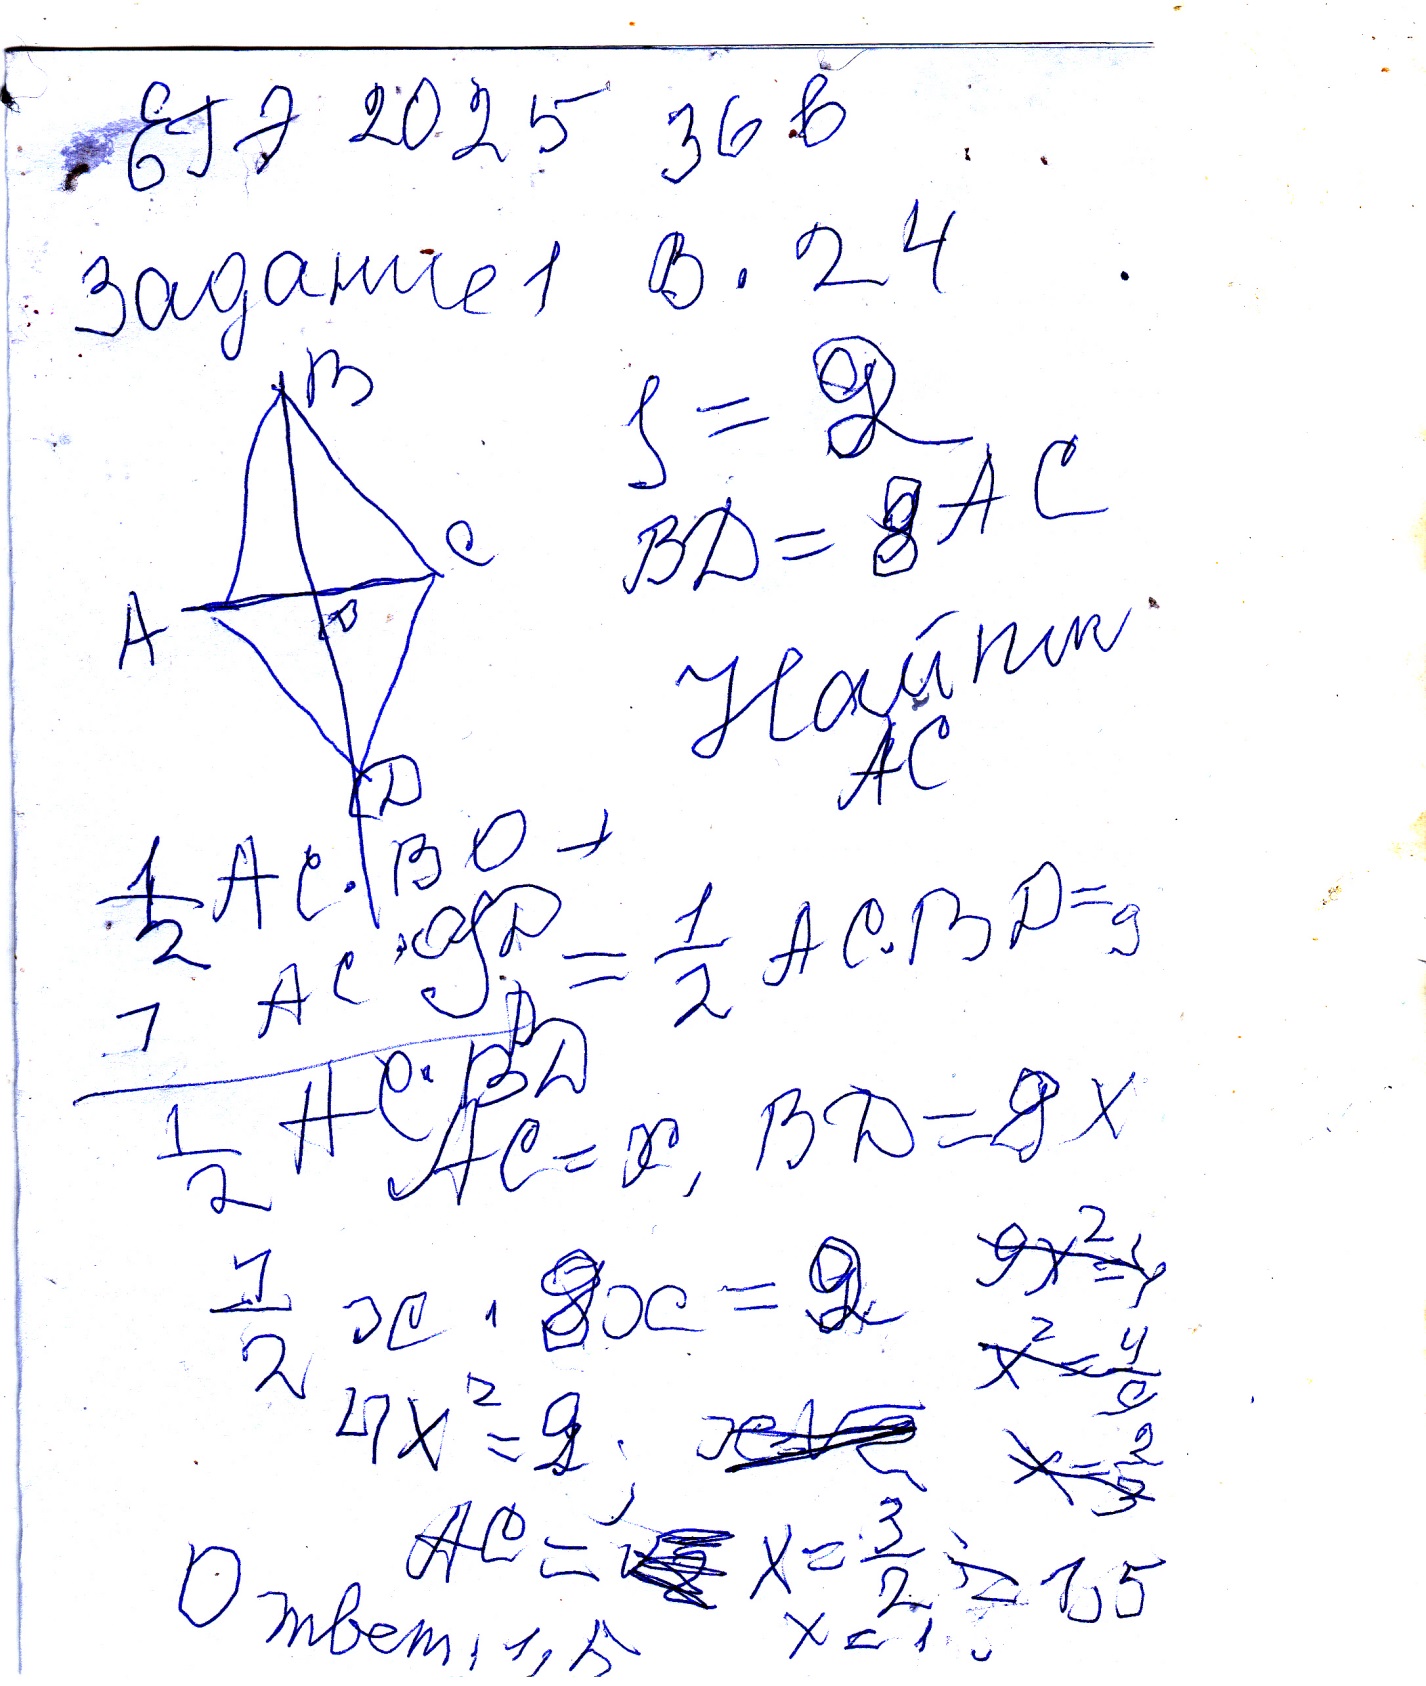 ЕГЭ 2025 36 в
Задание 1 В. 24
B
S = 9
C
BD = 8 AC
A
O
Найти
AC
D
1/2 AC · BO +
1/2 AC · OD = 1/2 AC · BD = 9
1/2 AC · BD
AC = x, BD = 8x
1/2 x · 8x = 9
9x² = 4
x² = 4/9
4x² = 9;
x = 2/3
AC = x = 3/2 = 1,5
Ответ: 1,5